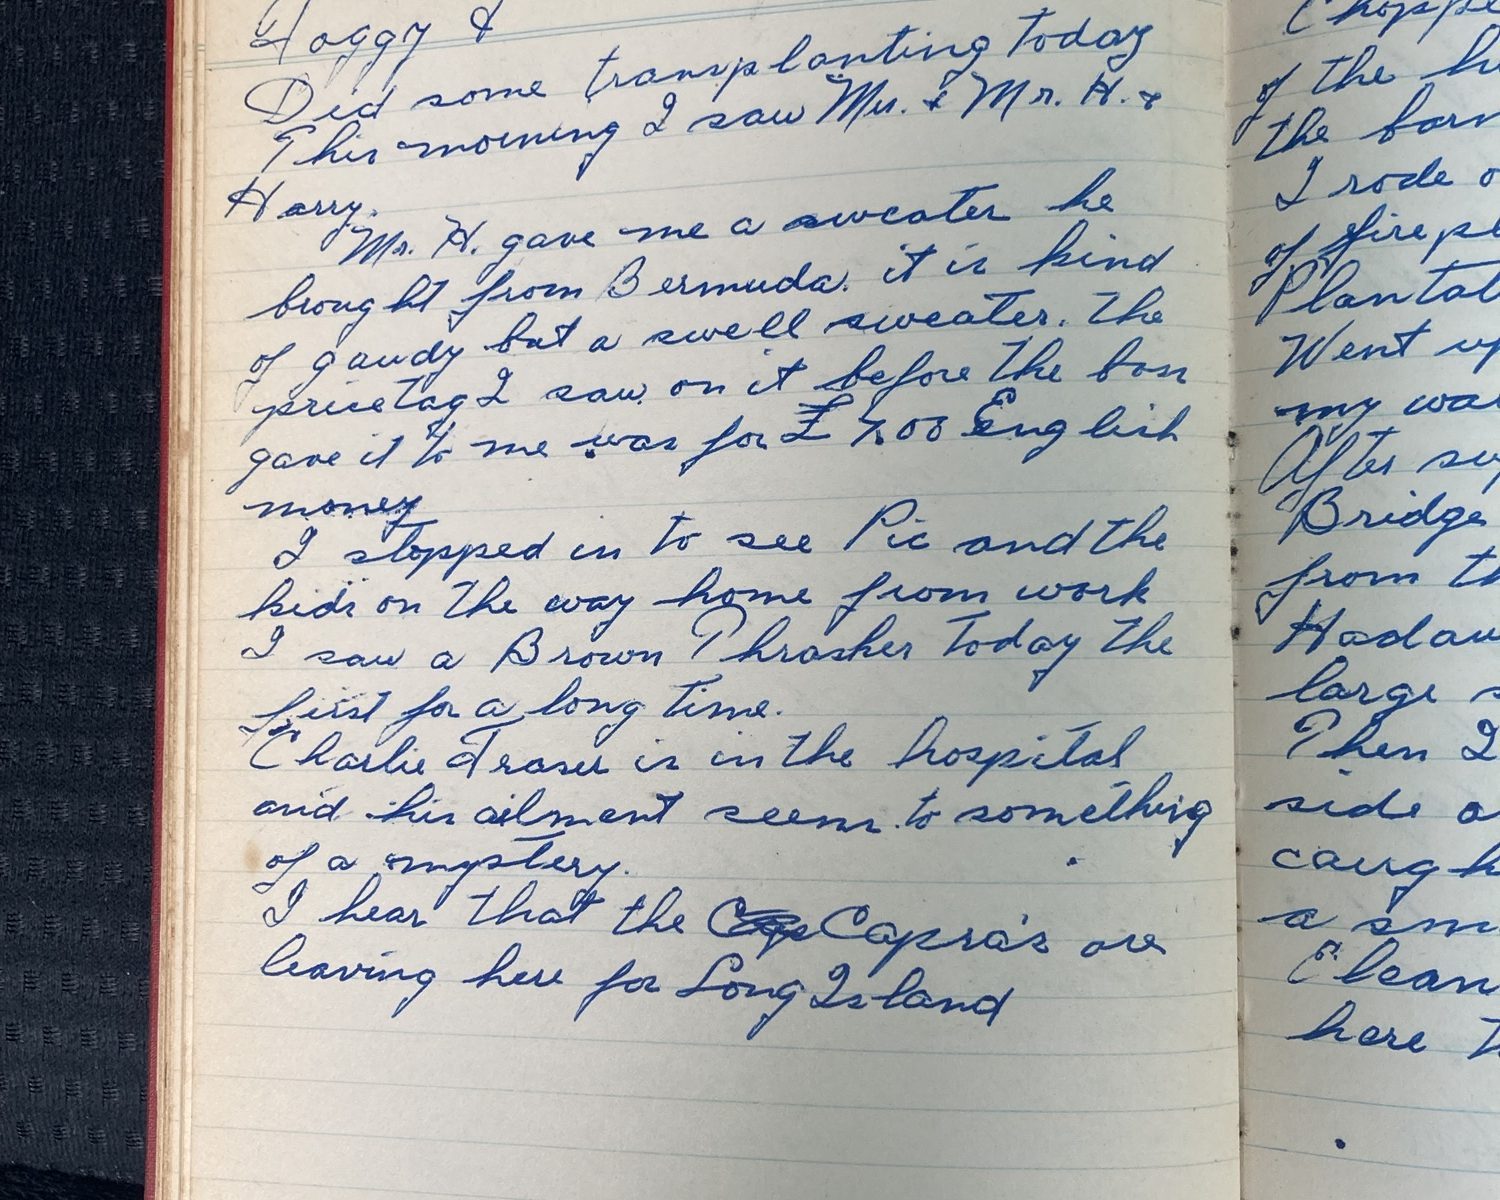 Foggy &
Did some transplanting today
This morning I saw Mrs. & Mr. H. &
Harry.
Mr. H. gave me a sweater he
brought from Bermuda. it is kind
of gaudy but a swell sweater. The
pricetag I saw on it before the boss
gave it to me was for £ 7.00 English
money
I stopped in to see Pic and the
kids on the way home from work
I saw a Brown Thrasher today the
first for a long time.
Charlie Fraser is in the hospital
and his ailment seems to something
of a mystery.
I hear that the Capra's are
leaving here for Long Island
of the
the barn
I rode
of
Went up
my
After
Bridge
from
large
Then I
side
a
here